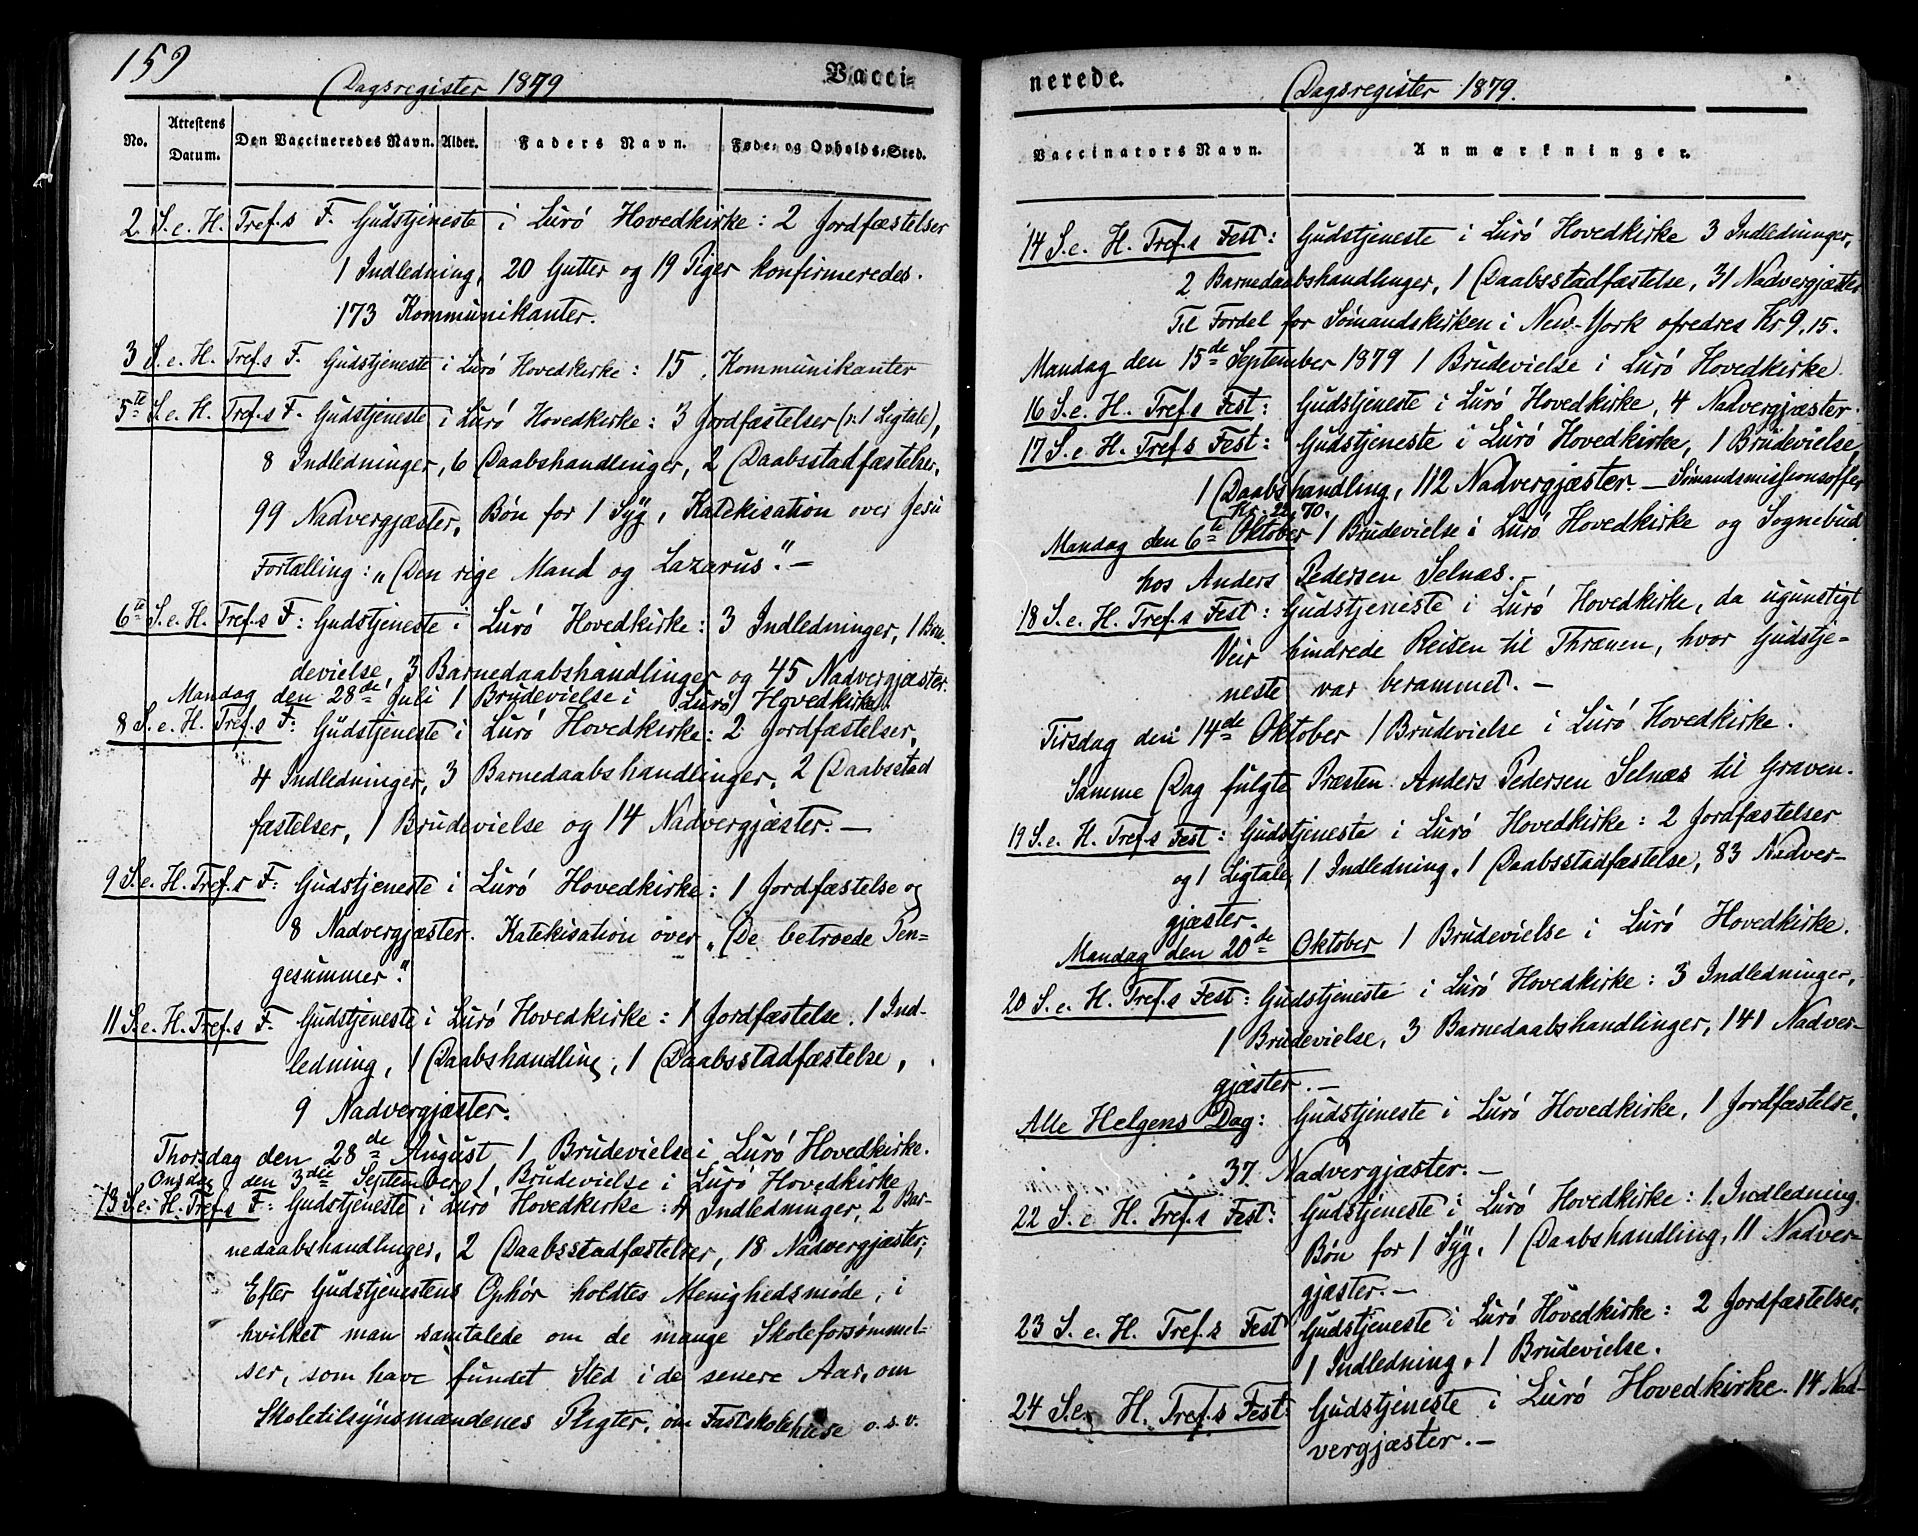 159
Dagsregister 1879
Vacci-
No.
Attestens Datum.
Den Vaccineredes Navn.
Alder.
Faders Navn.
Føde- og Opholds-Sted.
2 S. e. H. Tref.s F. Gudstjeneste i Lurö Hovedkirke: 2 Jordfæstelser
1 Indledning, 20 Gutter og 19 Piger konfirmeredes.
173 Kommunikanter.
3 S. e. H. Tref.s F. Gudstjeneste i Lurö Hovedkirke: 15 Kommunikanter
5te S. e. H. Tref.s F. Gudstjeneste i Lurö Hovedkirke: 3 Jordfæstelser (v. 1 Ligtale),
8 Indledninger, 6 Daabshandlinger, 2 Daabsstadfæstelser,
99 Nadvergjæster, Bøn for 1 Syg, Katekisation over Jesu
Fortælling: „Den rige Mand og Lazarus". —
6te S. e. H. Tref.s F: Gudstjeneste i Lurö Hovedkirke: 3 Indledninger, 1 Bru-
devielse, 3 Barnedaabshandlinger og 45 Nadvergjæster.
Mandag den 28de Juli 1 Brudevielse i Lurö Hovedkirke.
8 S. e. H. Tref.s F: Gudstjeneste i Lurö Hovedkirke: 2 Jordfæstelser,
4 Indledninger, 3 Barnedaabshandlinger, 2 Daabsstad
fæstelser, 1 Brudevielse og 14 Nadvergjæster. —
9 S. e. H. Tref.s F: Gudstjeneste i Lurö Hovedkirke: 1 Jordfæstelse og
8 Nadvergjæster. Katekisation over „De betroede Pen-
gesummer".
11 S. e. H. Tref.s F. Gudstjeneste i Lurö Hovedkirke: 1 Jordfæstelse. 1 Ind-
ledning, 1 Daabshandling, 1 Daabsstadfæstelse,
9 Nadvergjæster.
Thorsdag den 28de August 1 Brudevielse i Lurö Hovedkirke.
Onsdag den 3die September 1 Brudevielse i Lurö Hovedkirke
13 S. e. H. Tref.s F: Gudstjeneste i Lurö Hovedkirke: 4 Indledninger, 2 Bar-
nedaabshandlinger, 2 Daabsstadfæstelser, 18 Nadvergjæster;
Efter Gudstjenestens Ophør holdtes Menighedsmøde, i
hvilket man samtalede om de mange Skoleforsømmel-
ser, som have fundet Sted i de senere Aar, om
Skoletilsynsmændenes Pligter, om Fastskolehuse o.s.v.
nerede.
Dagsregister 1879.
Vaccinators Navn.
Anmærkninger.
14 S. e. H. Tref.s Fest: Gudstjeneste i Lurö Hovedkirke 3 Indledninger,
2 Barnedaabshandlinger, 1 Daabsstadfæstelse, 31 Nadvergjæster
Til Fordel for Sømandskirken i New-York ofredes Kr 9,15.
Mandag den 15de September 1879 1 Brudevielse i Lurö Hovedkirke.
16 S. e. H. Tref.s Fest: Gudstjeneste i Lurö Hovedkirke, 4 Nadvergjæster.
17 S. e. H. Tref.s Fest: Gudstjeneste i Lurö Hovedkirke, 1 Brudevielse,
1 Daabshandling, 112 Nadvergjæster. — Sømandsmissionsoffer
Kr. 22,70.
Mandag den 6te Oktober 1 Brudevielse i Lurö Hovedkirke og Sognebud
hos Anders Pedersen Selnæs. —
18 S. e. H. Tref.s Fest: Gudstjeneste i Lurö Hovedkirke, da ugunstigt
Veir hindrede Reisen til Thrænen, hvor Gudstje-
neste var berammet. —
Tirsdag den 14de Oktober 1 Brudevielse i Lurö Hovedkirke.
Samme Dag fulgte Præsten Anders Pedersen Selnæs til Graven.
19 S. e. H. Tref.s Fest: Gudstjeneste i Lurö Hovedkirke: 2 Jordfæstelser
og 1 Ligtale, 1 Indledning, 1 Daabsstadfæstelse, 83 Nadver-
gjæster.
Mandag den 20de Oktober 1 Brudevielse i Lurö Hovedkirke.
20 S. e. H. Tref.s Fest: Gudstjeneste i Lurö Hovedkirke: 3 Indledninger,
1 Brudevielse, 3 Barnedaabshandlinger, 141 Nadver-
gjæster. —
Alle Helgens Dag: Gudstjeneste i Lurö Hovedkirke, 1 Jordfæstelse,
37 Nadvergjæster. —
22 S. e H. Tref.s Fest: Gudstjeneste i Lurö Hovedkirke: 1 Indledning
Bøn for 1 Syg, 1 Daabshandling, 11 Nadver-
gjæster. —
23 S. e. H. Tref.s Fest Gudstjeneste i Lurö Hovedkirke: 2 Jordfæstelser,
1 Indledning, 1 Brudevielse.
24 S. e. H. Tref.s Fest: Gudstjeneste i Lurö Hovedkirke. 14 Nad-
vergjæster. —